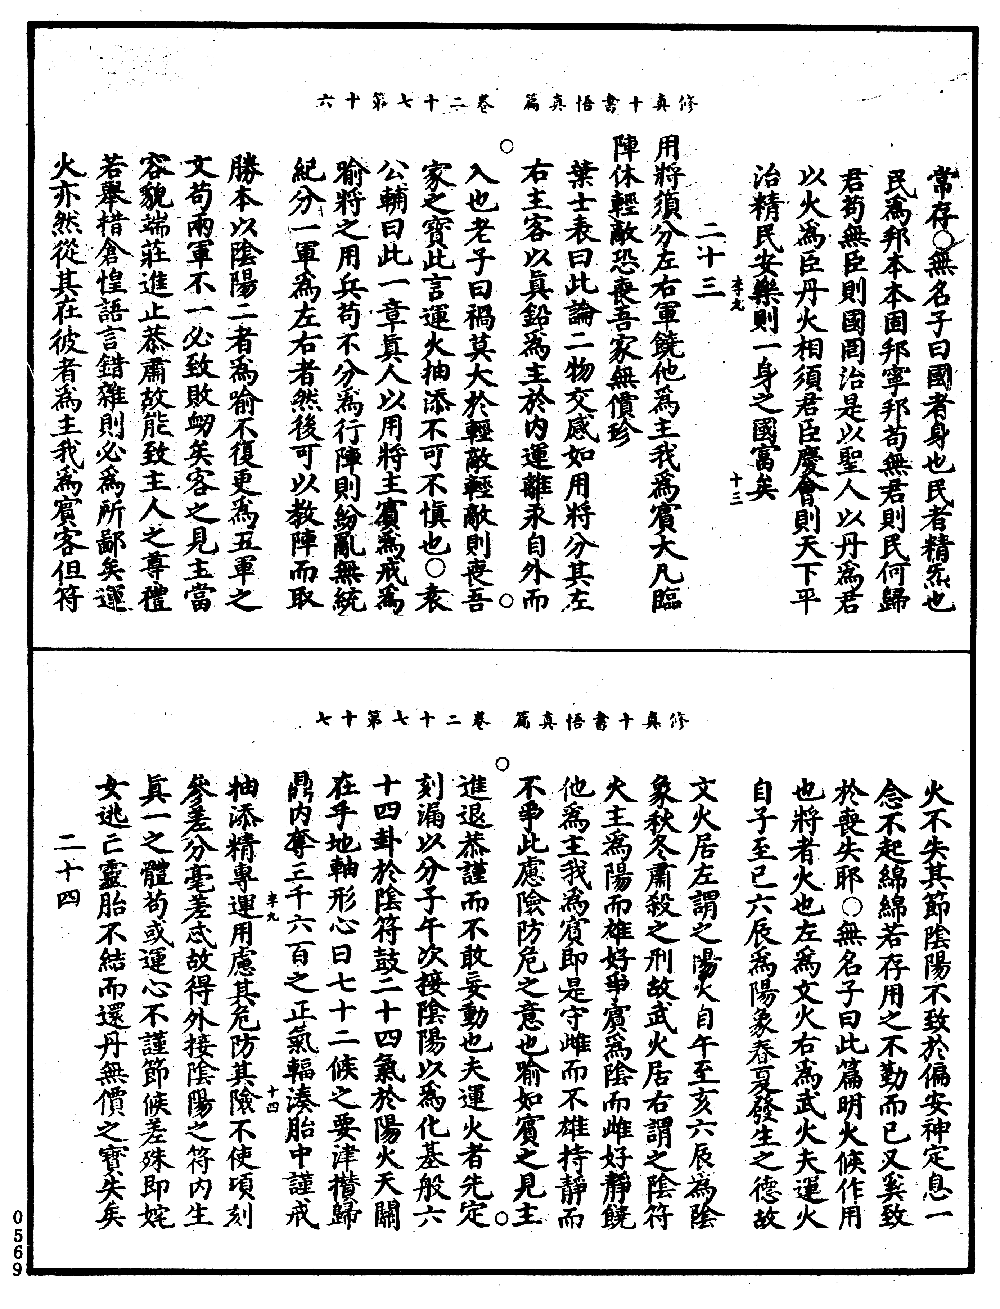 修真十書悟真篇　卷二十七第十六
常存○無名子曰國者身也民者精炁也
民爲邦本本固邦寧邦苟無君則民何歸
君苟無臣則國罔治是以聖人以丹爲君
以火爲臣丹火相須君臣慶會則天下平
治精民安樂則一身之國富矣
李九　十三
二十三
用將須分左右軍饒他爲主我爲賓大凡臨
陣休輕敵恐喪吾家無價珍
葉士表曰此論二物交感如用將分其左
右主客以眞鉛爲主於內運離汞自外而
入也老子曰禍莫大於輕敵輕敵則喪吾
家之寶此言運火抽添不可不愼也○袁
公輔曰此一章眞人以用將主賓爲戒爲
喻將之用兵苟不分爲行陣則紛亂無統
紀分一軍爲左右者然後可以教陣而取
勝本以陰陽二者爲喻不復更爲五軍之
文苟兩軍不一必致敗衂矣客之見主當
容貌端莊進止恭肅故能致主人之尊禮
若舉措倉惶語言錯雜則必爲所鄙矣運
火亦然從其在彼者爲主我爲賓客但符
修真十書悟真篇　卷二十七第十七
火不失其節陰陽不致於偏安神定息一
念不起綿綿若存用之不勤而已又奚致
於喪失耶○無名子曰此篇明火候作用
也將者火也左爲文火右爲武火夫運火
自子至巳六辰爲陽象春夏發生之德故
文火居左謂之陽火自午至亥六辰爲陰
象秋冬肅殺之刑故武火居右謂之陰符
火主爲陽而雄好爭賓爲陰而雌好靜饒
他爲主我爲賓即是守雌而不雄持靜而
不爭此慮險防危之意也喻如賓之見主
進退恭謹而不敢妄動也夫運火者先定
刻漏以分子午次接陰陽以爲化基般六
十四卦於陰符鼓二十四氣於陽火天關
在乎地軸形心曰七十二候之要津攢歸
鼎內奪三千六百之正氣輻湊胎中謹戒
李九　十四
抽添精專運用慮其危防其險不使頃刻
參差分毫差忒故得外接陰陽之符內生
眞一之體苟或運心不謹節候差殊即姹
女逃亡靈胎不結而還丹無價之寶失矣
二十四
0569